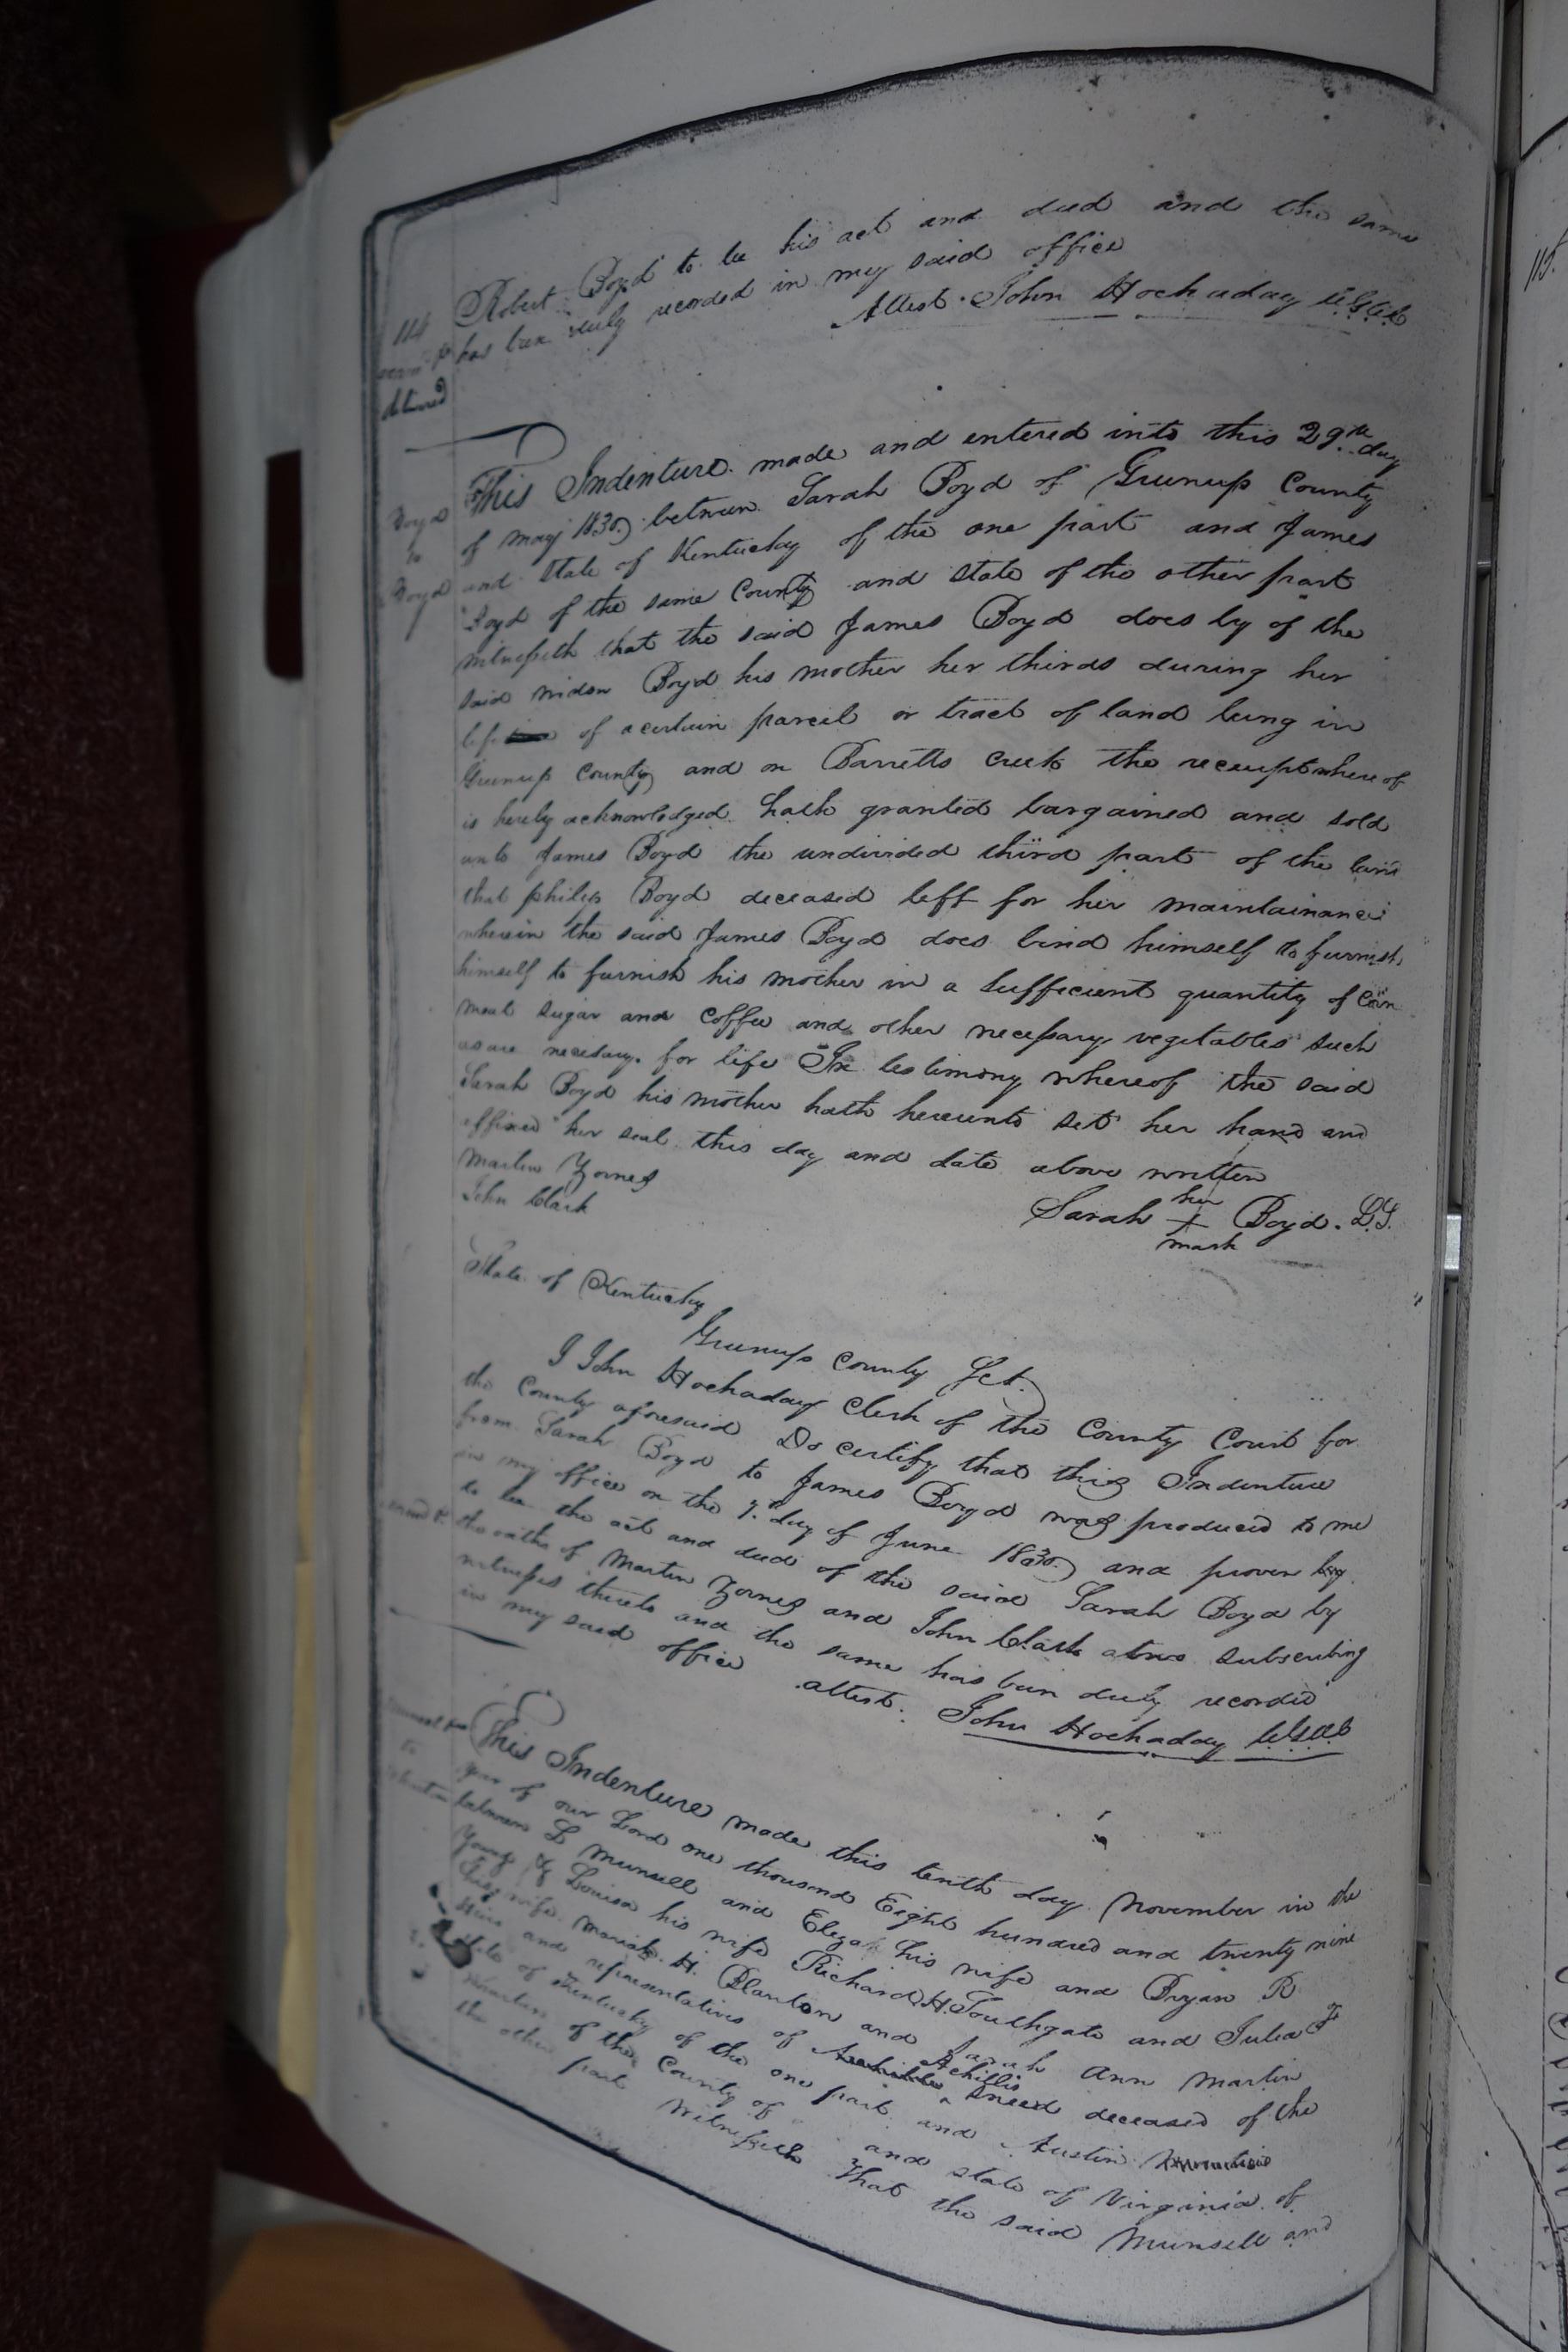 114
Robert Boyd to be his act and deed and the same
has been duly recorded in my said office
Attest. John Hockaday
This Indenture made and entered into this 29th day
Boyd
to
Boyd
of may 1830 between Sarah Boyd of Greenup County
and State of Kentucky of the one part and James
Boyd of the same County and state of the other part
witnesseth that the said James Boyd does by of the
said widow Boyd his mother her thirds during her
life of a certain parcel or tract of land being in
Greenup County and on Barretts Creek the receipt whereof
is hereby acknowledged hath granted bargained and sold
unto James Boyd the undivided third part of the land
that philip Boyd deceased left for her maintainance
wherein the said James Boyd does bind himself to furnish
himself to furnish his mother in a sufficient quantity of corn
meat sugar and coffee and other necessary vegetables such
as are necessary for life In testimony whereof the said
Sarah Boyd his mother hath hereunto set her hand and
affixed her seal this day and date above written
Martin Zornes
John Clark
Sarah her + mark Boyd. LS.
State of Kentucky
Greenup County Sct.
I John Hockaday Clerk of the County Court for
the County aforesaid Do certify that this Indenture
from Sarah Boyd to James Boyd was produced to me
in my office on the 7th day of June 1830 and proven by
to be the act and deed of the said Sarah Boyd by
the oaths of Martin Zornes and John Clark subscribing
witnesses thereto and the same has been duly recorded
in my said office
attest. John Hockaday
This Indenture made this tenth day November in the
year of our Lord one thousand Eight hundred and twenty nine
between L Munsell and Eliza his wife and Bryan R
Young & Louisa his wife Richard H. Southgate and Julia F
his wife Mariah H. Blanton and Sarah Ann Martin
Heirs and representatives of Achillis Sneed deceased of the
State of Kentucky of the one part and Austin
of the County of and state of Virginia of
the other part Witnesseth That the said Munsell and